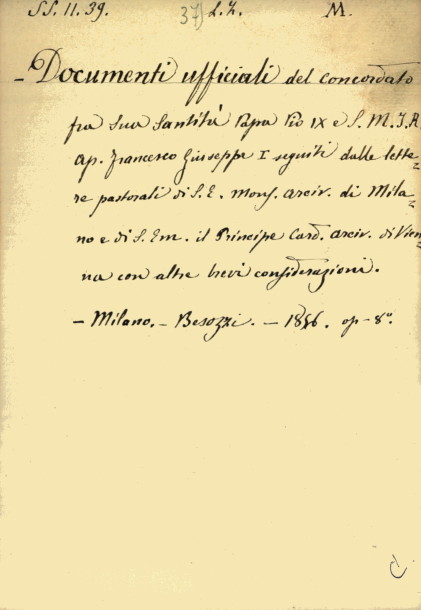 SS. 11. 39. 37) L. Z. M.
- Documenti ufficiali del concordato
fra Sua Santità Papa Pio IX e S. M. I. R.
Ap. Francesco Giuseppe I seguiti dalle lette=
re pastorali di S. E. Mons. arciv. di Mila=
no e di S. Em. il Principe Card. arciv. di Vien=
na con altre brevi considerazioni.
- Milano. - Besozzi. - 1856. op - 8°.